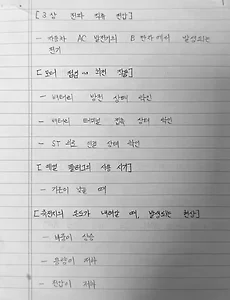 [3상 전파 직류 전압]
- 자동차 AC 발전기의 B 단자에서 발생되는
전기
- 배터리 방전 상태 확인
- 배터리 터미널 접촉 상태 확인
- ST 회로 연결 상태 확인
[예열 플러그의 사용 시기]
- 기온이 낮을 때
[축전지의 온도가 내려갈 때, 발생되는 현상]
- 비중이 상승
- 용량이 저하
- 전압이 저하